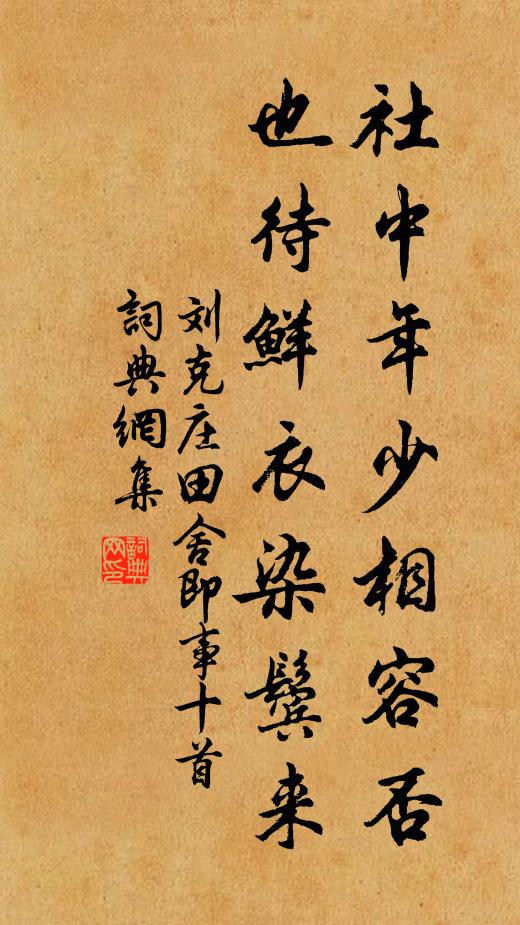 社中年少相容否
也待鮮衣染鬢来
刘克庄田舍即事十首
詞典網集
詞典网印